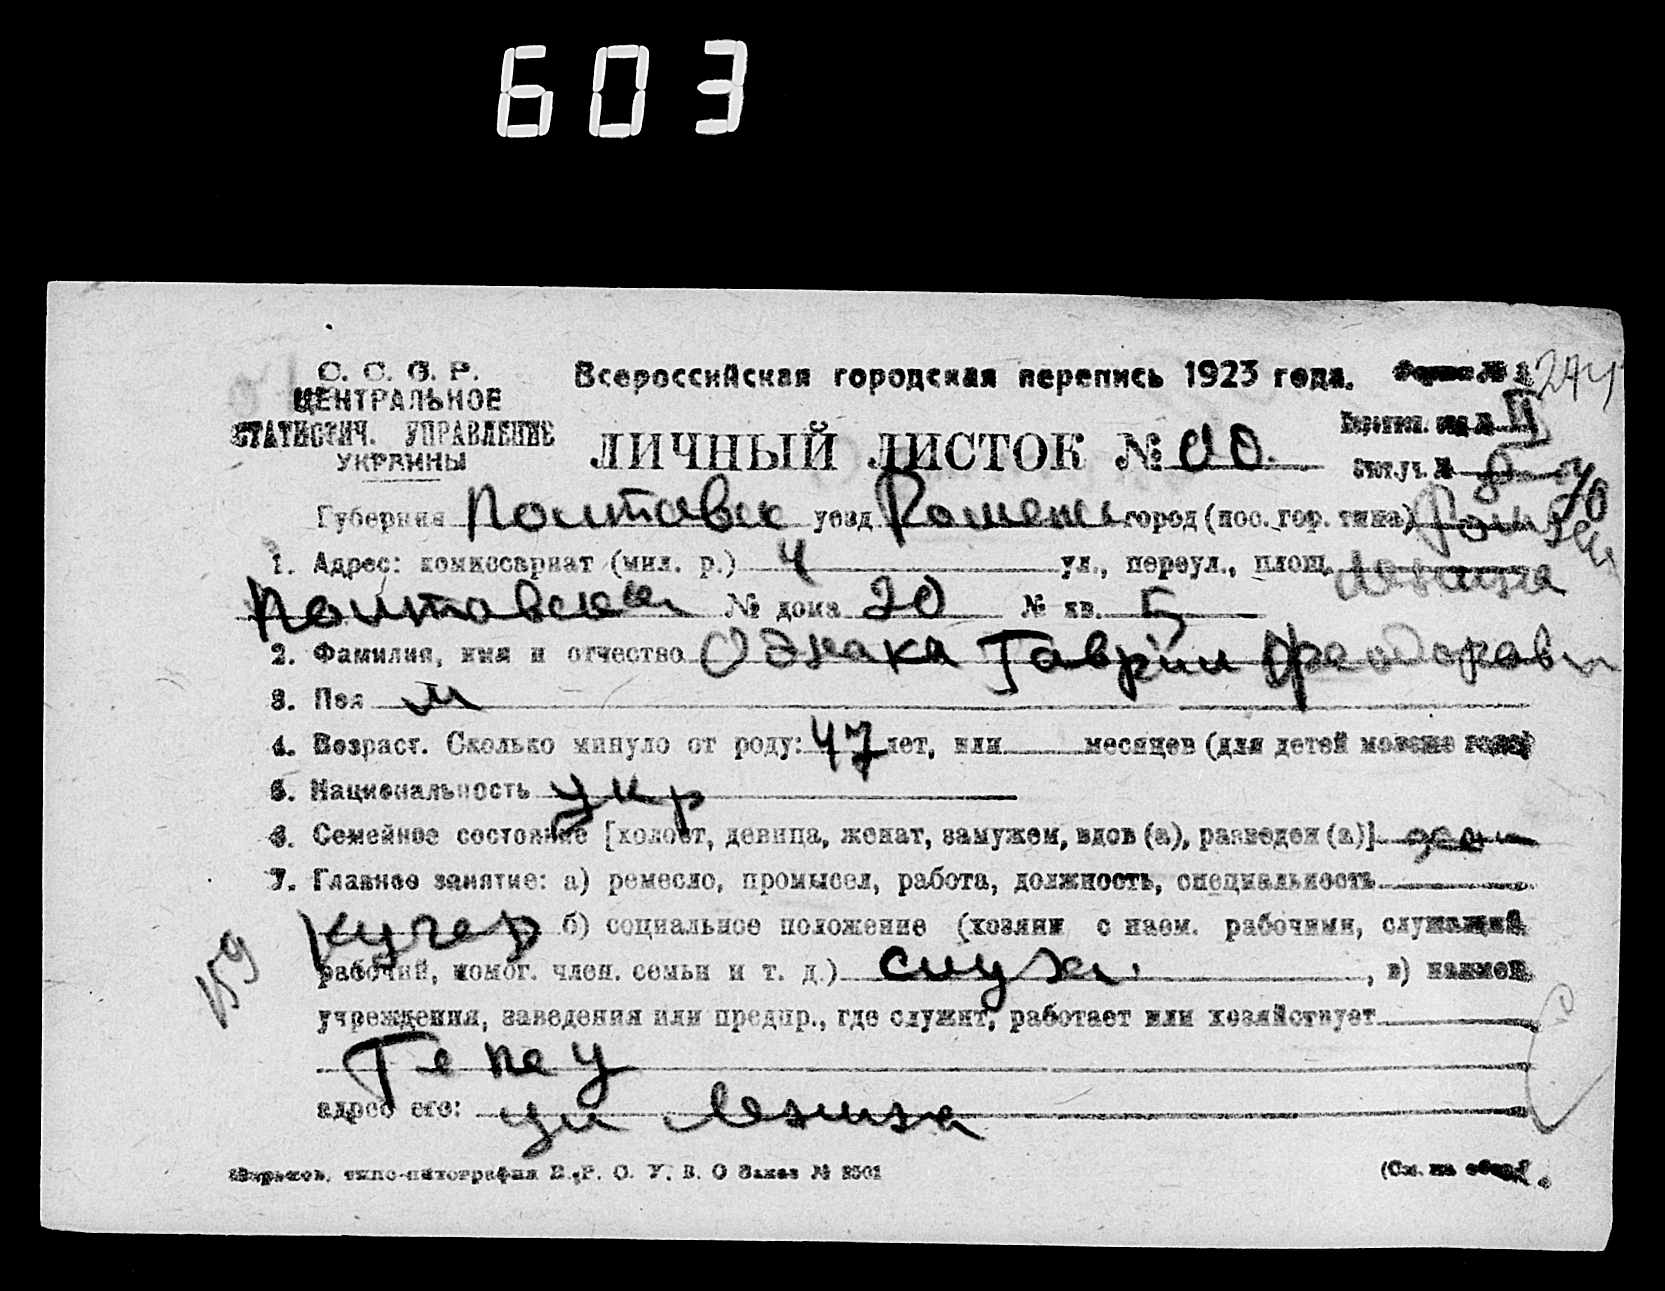 603
С. С. С. Р.
ЦЕНТРАЛЬНОЕ
СТАТИСТИЧ. УПРАВЛЕНИЕ
УКРАИНЫ
Всероссийская городская перепись 1923 года. Форма № 244
II
ЛИЧНЫЙ ЛИСТОК №
Счет. уч. №
Губерния Полтавск уезд Роменск город (пос. гор. типа)
1. Адрес: комиссариат (мил. р.) 4 ул., переул., площ. Ленина
Полтавской № дома 20 № кв. 5
2. Фамилия, имя и отчество Однака Гаврйил
3. Пол м
4. Возраст. Сколько минуло от роду: 47 лет, или месяцев (для детей моложе года)
5. Национальность укр
6. Семейное состояние [холост, девица, женат, замужем, вдов (а), разведен (а)] жен
7. Главное занятие: а) ремесло, промысел, работа, должность, специальность
кучер б) социальное положение (хозяин с наем. рабочими, служащий,
159
рабочий, помог. член. семьи и т. д.) служ. , в) наимен.
учреждения, заведения или предпр., где служит, работает или хозяйствует
Ге пе у
адрес его: ул Ленина
Харьков, типо-литография В., Р. О. У. В. О Заказ № 2501
(См. на обор.)